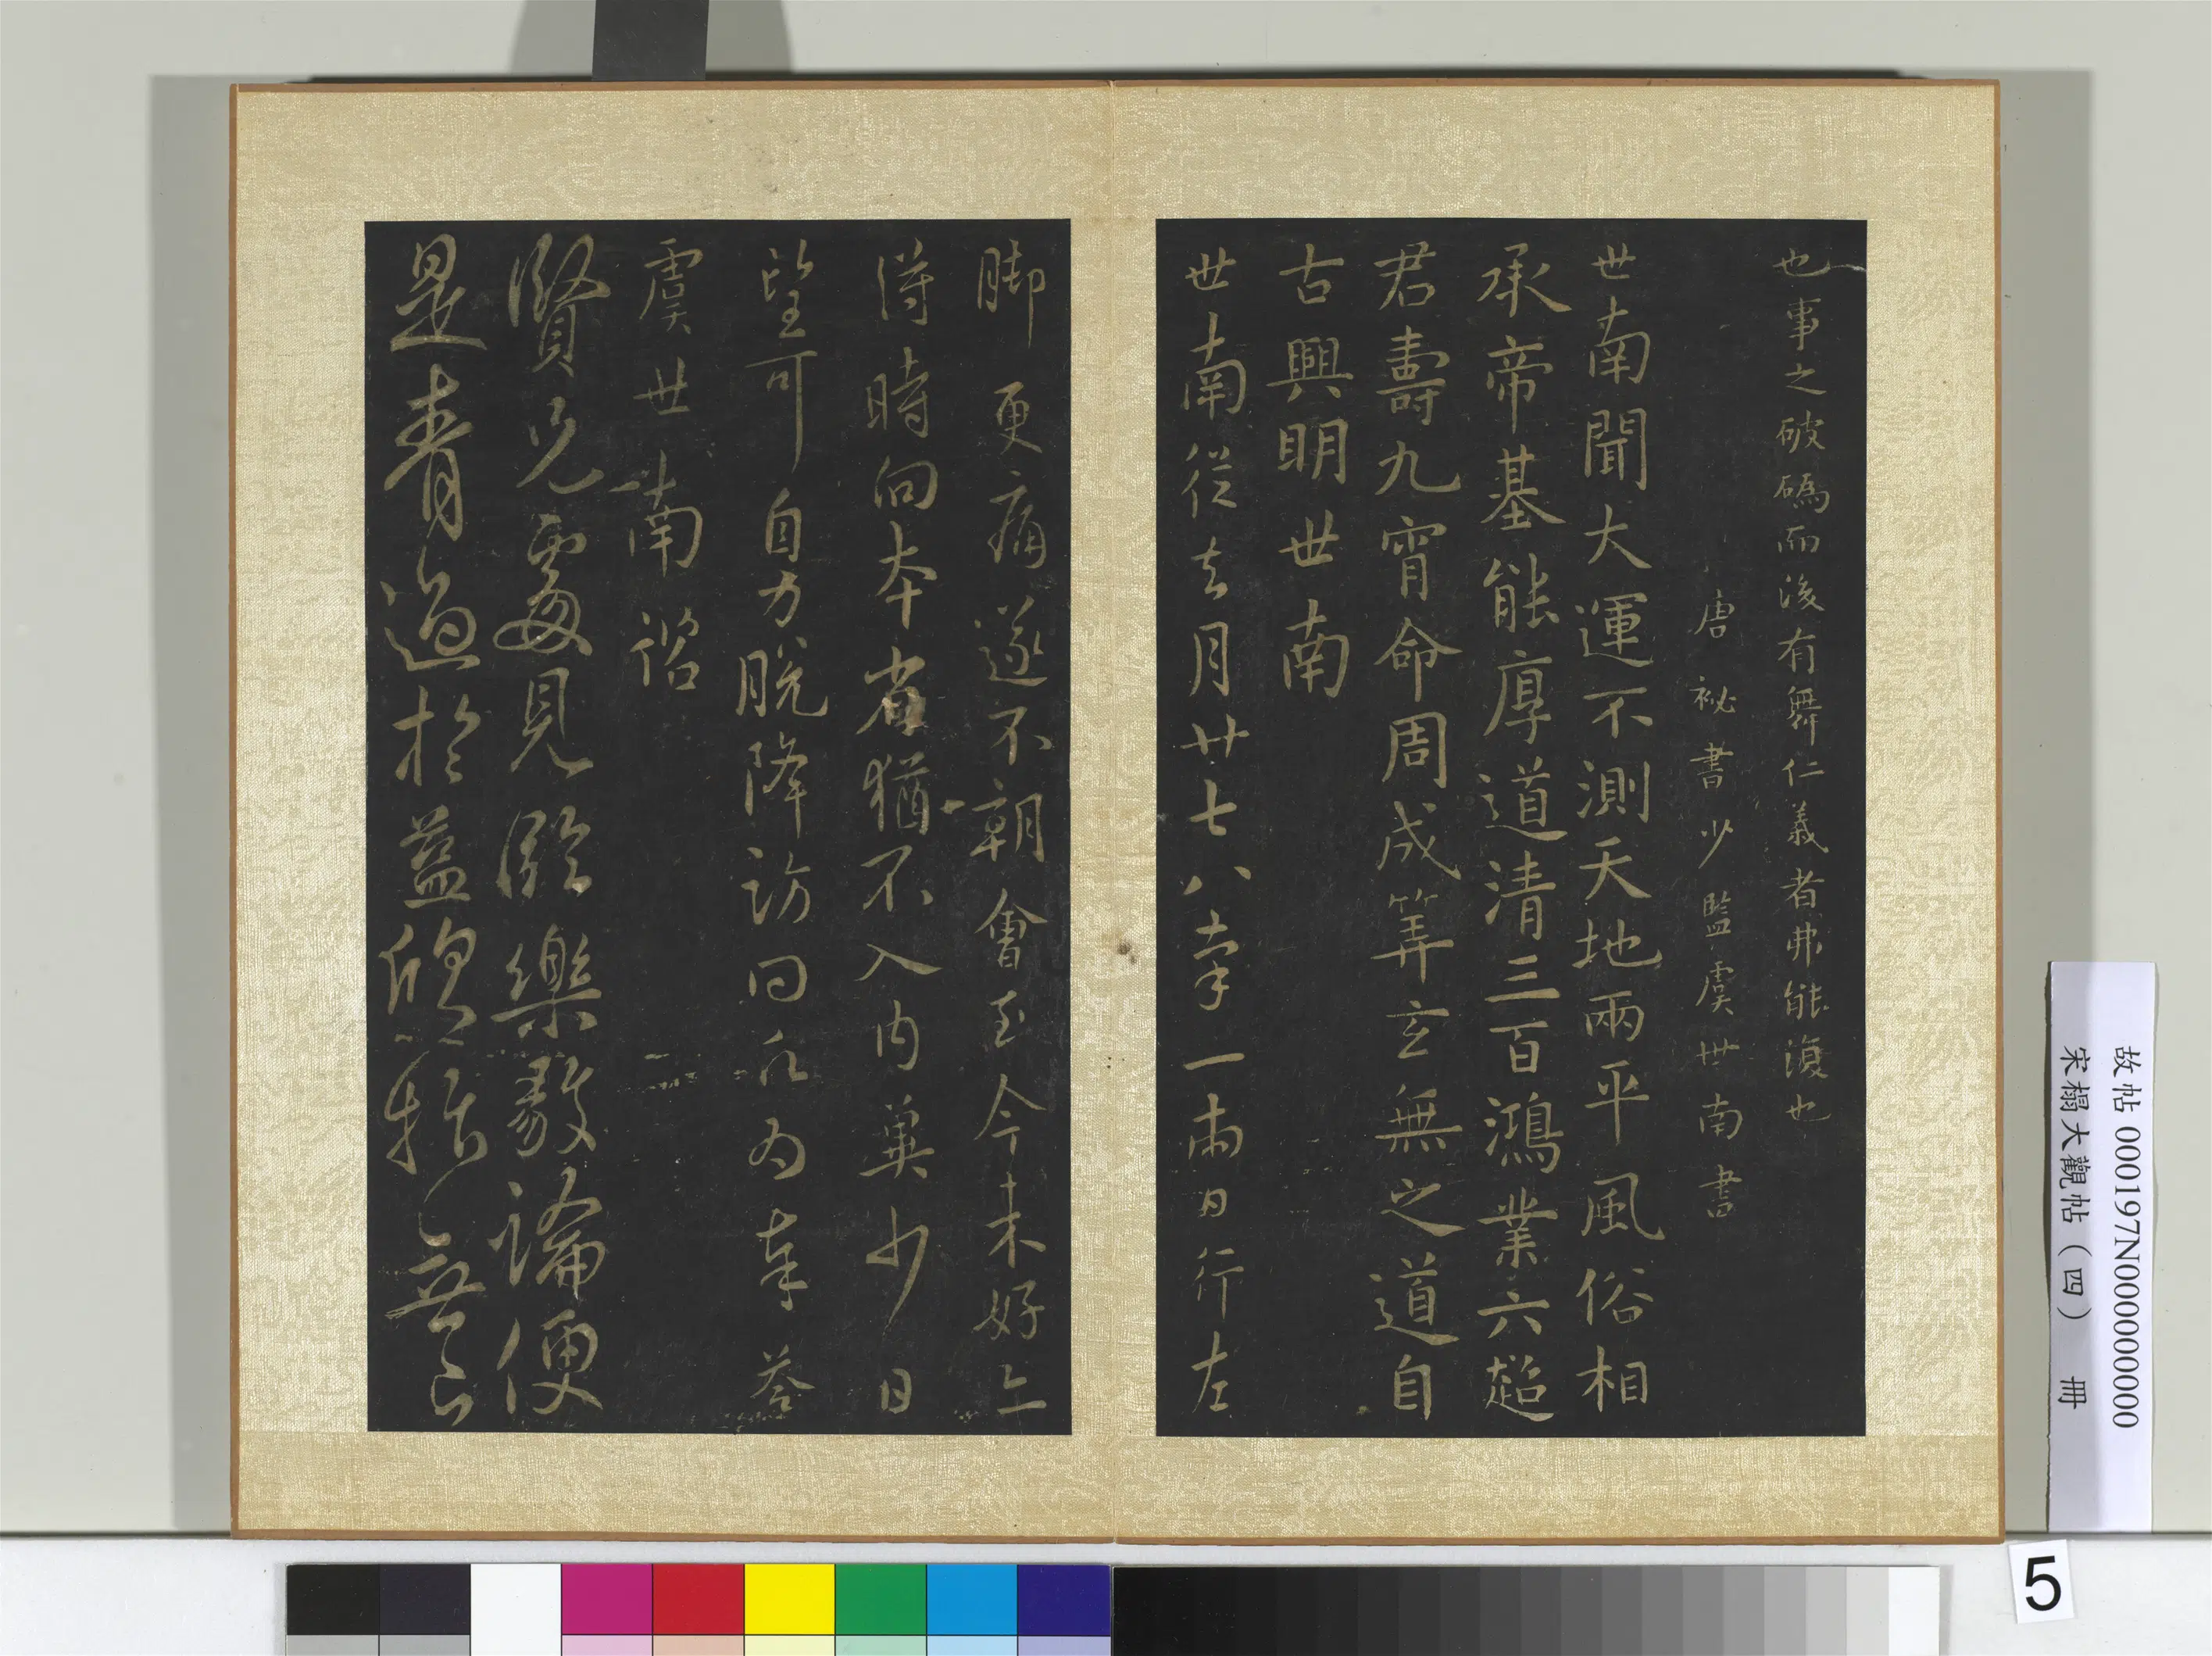 也事之破碼而後有舞仁義者弗能復也
唐祕書少監虞世南書
世南聞大運不測天地兩平風俗相
承帝基能厚道清三百鴻業六超
君壽九霄命周成筭玄無之道自
古興明世南
世南從去月廿七八率一兩日行左
脚更痛遂不朝會至今未好亦
得時向本省猶不入內冀少日
望可自力脫降訪問仁為奉荅
虞世南諮
賢兄處見臨樂毅論便
是青過於藍欣抃無已
故帖 000197N000000000
宋榻大觀帖（四） 冊
5